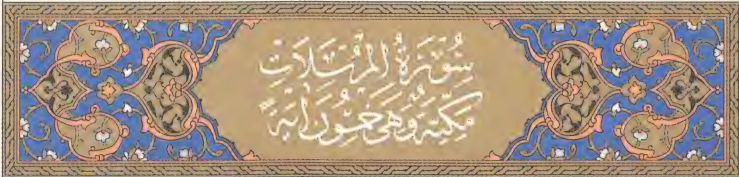 سُورَةُ الْمُرْسَلَاتِ
مَكِّيَّة وَهِىَ خَمْسُونَ آيَةً